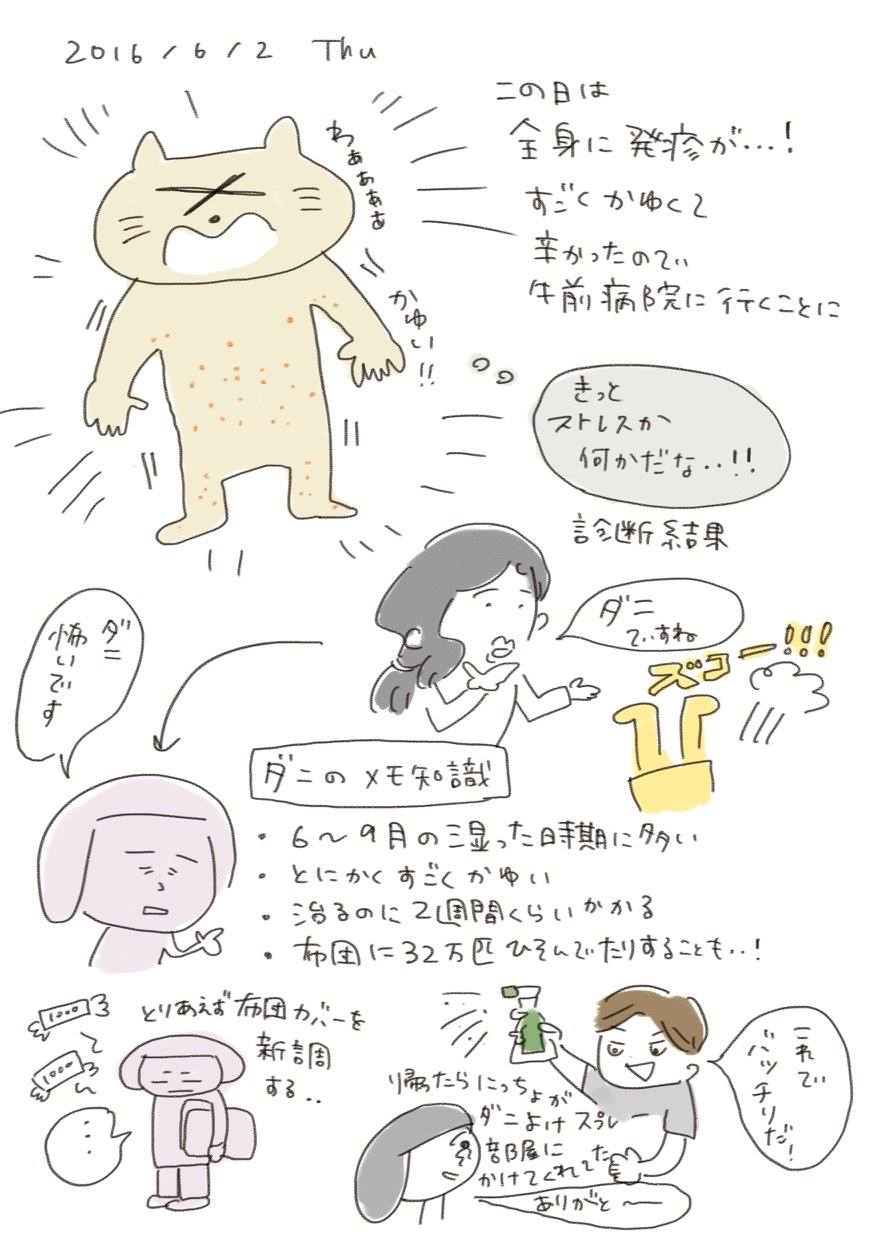 2016/6/2 Thu
この日は
全身に発疹が…!
すごくかゆくて
辛かったので
午前病院に行くことに
わぁぁぁぁ
かゆい!!
きっと
ストレスか
何かだな..!!
診断結果
ダニ
ですね
ズコー!!!
ダニ
怖いです
ダニのメモ知識
・6〜9月の湿った時期に多い
・とにかくすごくかゆい
・治るのに2週間くらいかかる
・布団に32万匹ひそんでたりすることも..!
とりあえず布団カバーを
新調
する..
1000
1000
...
帰ったらにっちょが
ダニよけスプレー
部屋に
かけてくれてた
これで
バッチリだ!
ありがと〜